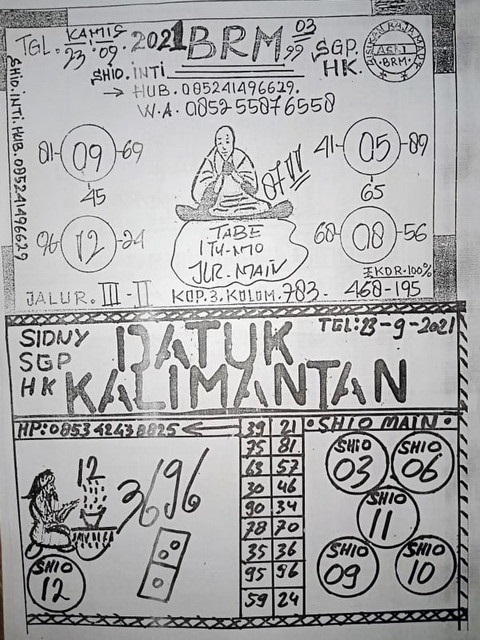 TGL. KAMIS 23.09.2021 BRM 03 99 SGP. HK.
ASKI BRM
SHIO. INTI
→ HUB. 085241496629.
W.A. 085255876558
SHIO. INTI. HUB. 085241496629
81-09-69
45
41-05-89
65
96-12-24
68-08-56
TABE
JLR. MAIN
EKOR. 100%
JALUR. III-II KOP. 3. KOLOM. 783. 468-195
SIDNY
SGP
HK
DATUK
KALIMANTAN
TGL: 23-9-2021
HP: 085342438825
39 21
75 81
63 57
30 46
90 34
28 70
35 36
95 96
59 24
• SHIO MAIN •
SHIO 03
SHIO 06
SHIO 11
SHIO 09
SHIO 10
12
3696
SHIO 12